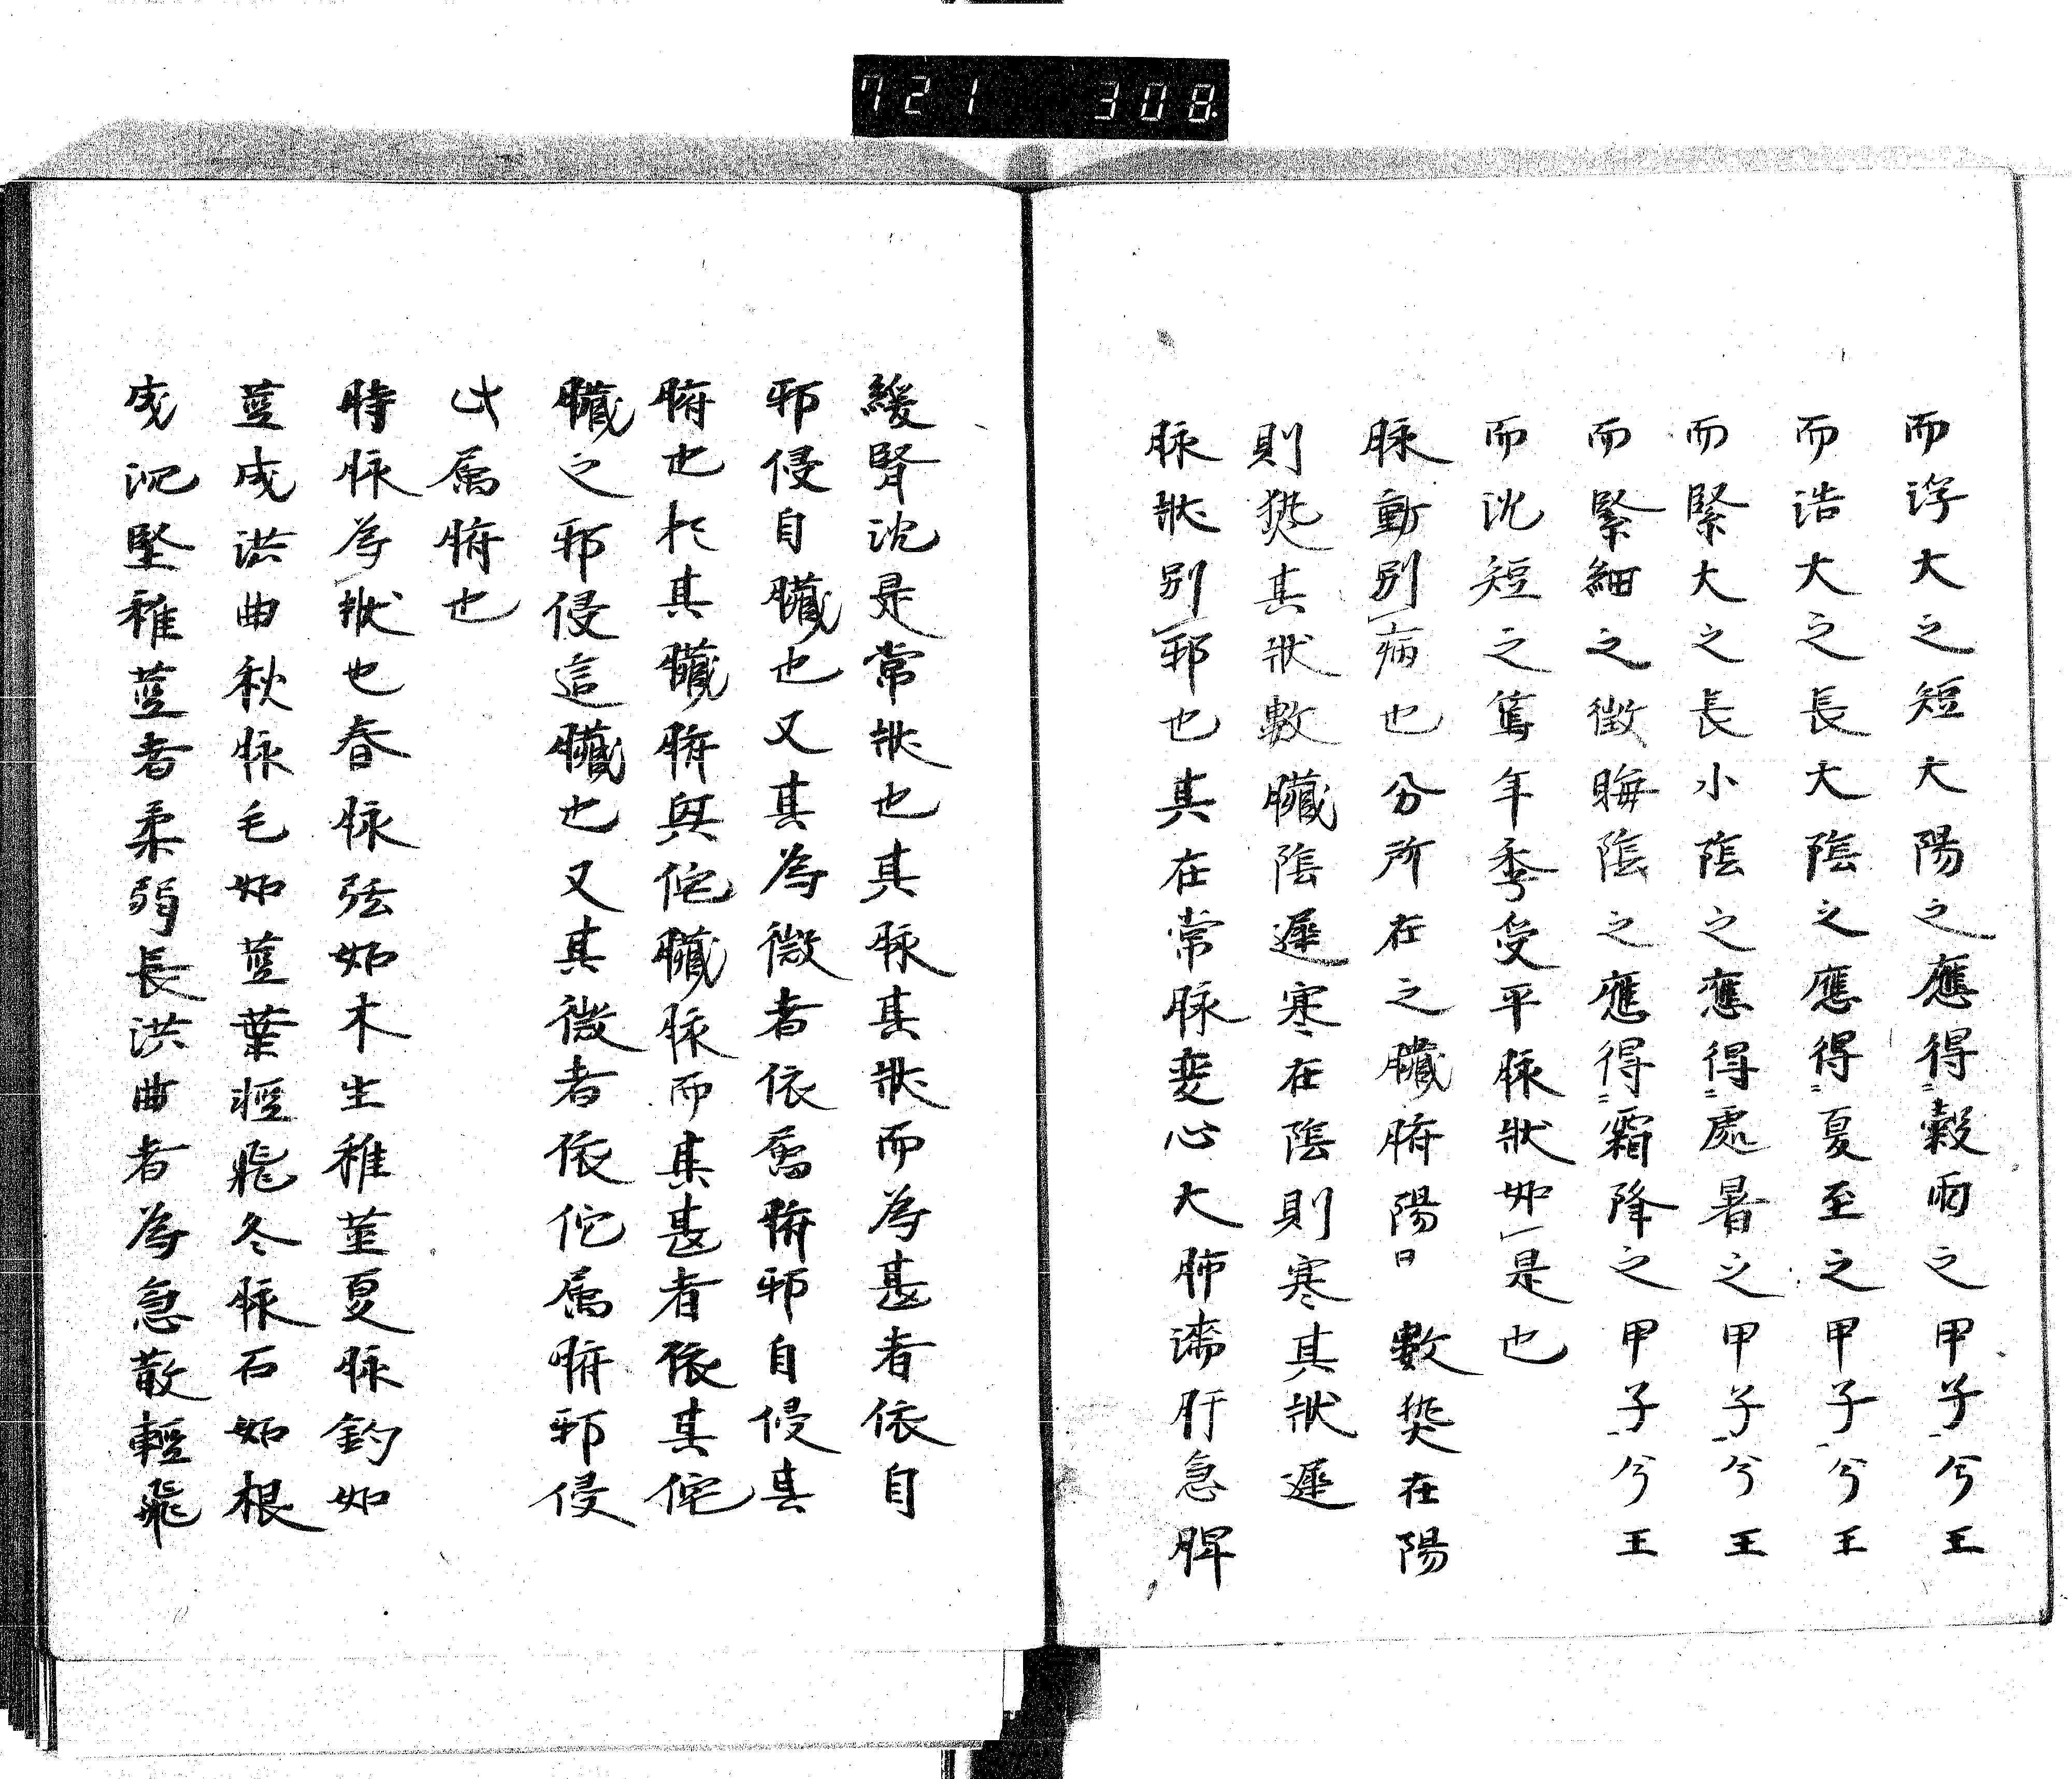 721 308
而浮大之短大陽之應得〻穀雨之甲子兮王
而浩大之長大陰之應得〻夏至之甲子兮王
而緊大之長小陰之應得〻處暑之甲子兮王
而緊細之微晦陰之應得〻霜降之甲子兮王
而沈短之篤年季受平脉狀如是也
脉動別病也分所在之臟腑陽曰數熒在陽
則熒其狀數臟陰遲寒在陰則寒其狀遲
脉狀別邪也其在常脉変心大肺濇肝急脾
緩腎沈是常狀也其脉其狀而為甚者依自
邪侵自臟也又其為微者依属腑邪自侵其
腑也於其臟腑與佗臟脉而其甚者依其佗
臟之邪侵這臟也又其微者依佗属腑邪侵
此属腑也
時脉為狀也春脉弦如木生稚莖夏脉鈎如
莖成洪曲秋脉毛如莖葉輕飛冬脉石如根
成沉堅稚莖者柔弱長洪曲者為急散輕飛